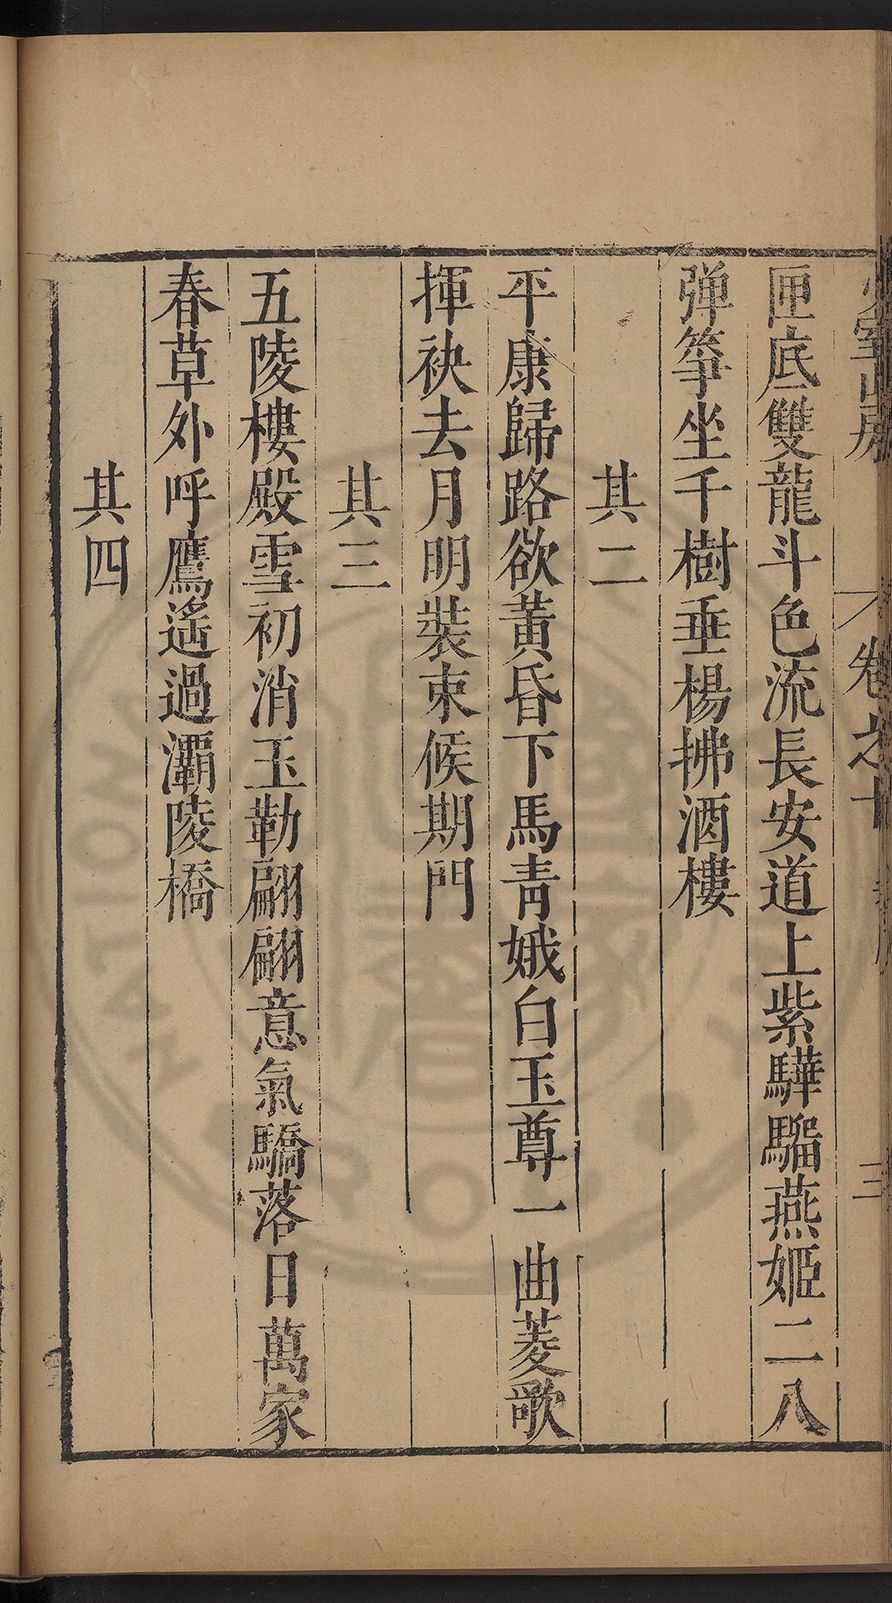 少室山房
卷之十
三
匣底雙龍斗色流長安道上紫驊騮燕姬二八
彈筝坐千樹垂楊拂酒樓
其二
平康歸路欲黃昏下馬靑娥白玉尊一曲菱歌
揮袂去月明裝束候期門
其三
五陵樓殿雪初消玉勒翩翩意氣驕落日萬家
春草外呼鷹遙過灞陵橋
其四